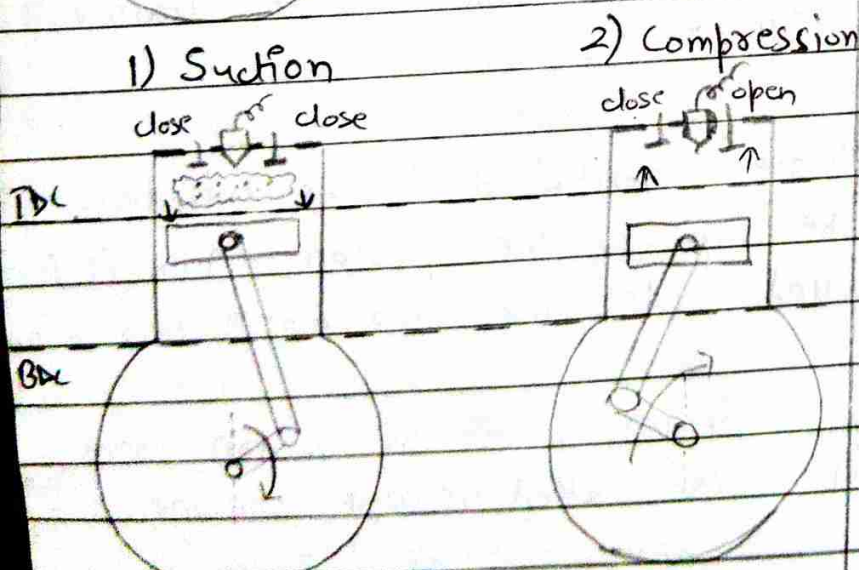 1) Suction
2) Compression
close close
close open
TDC
BDC